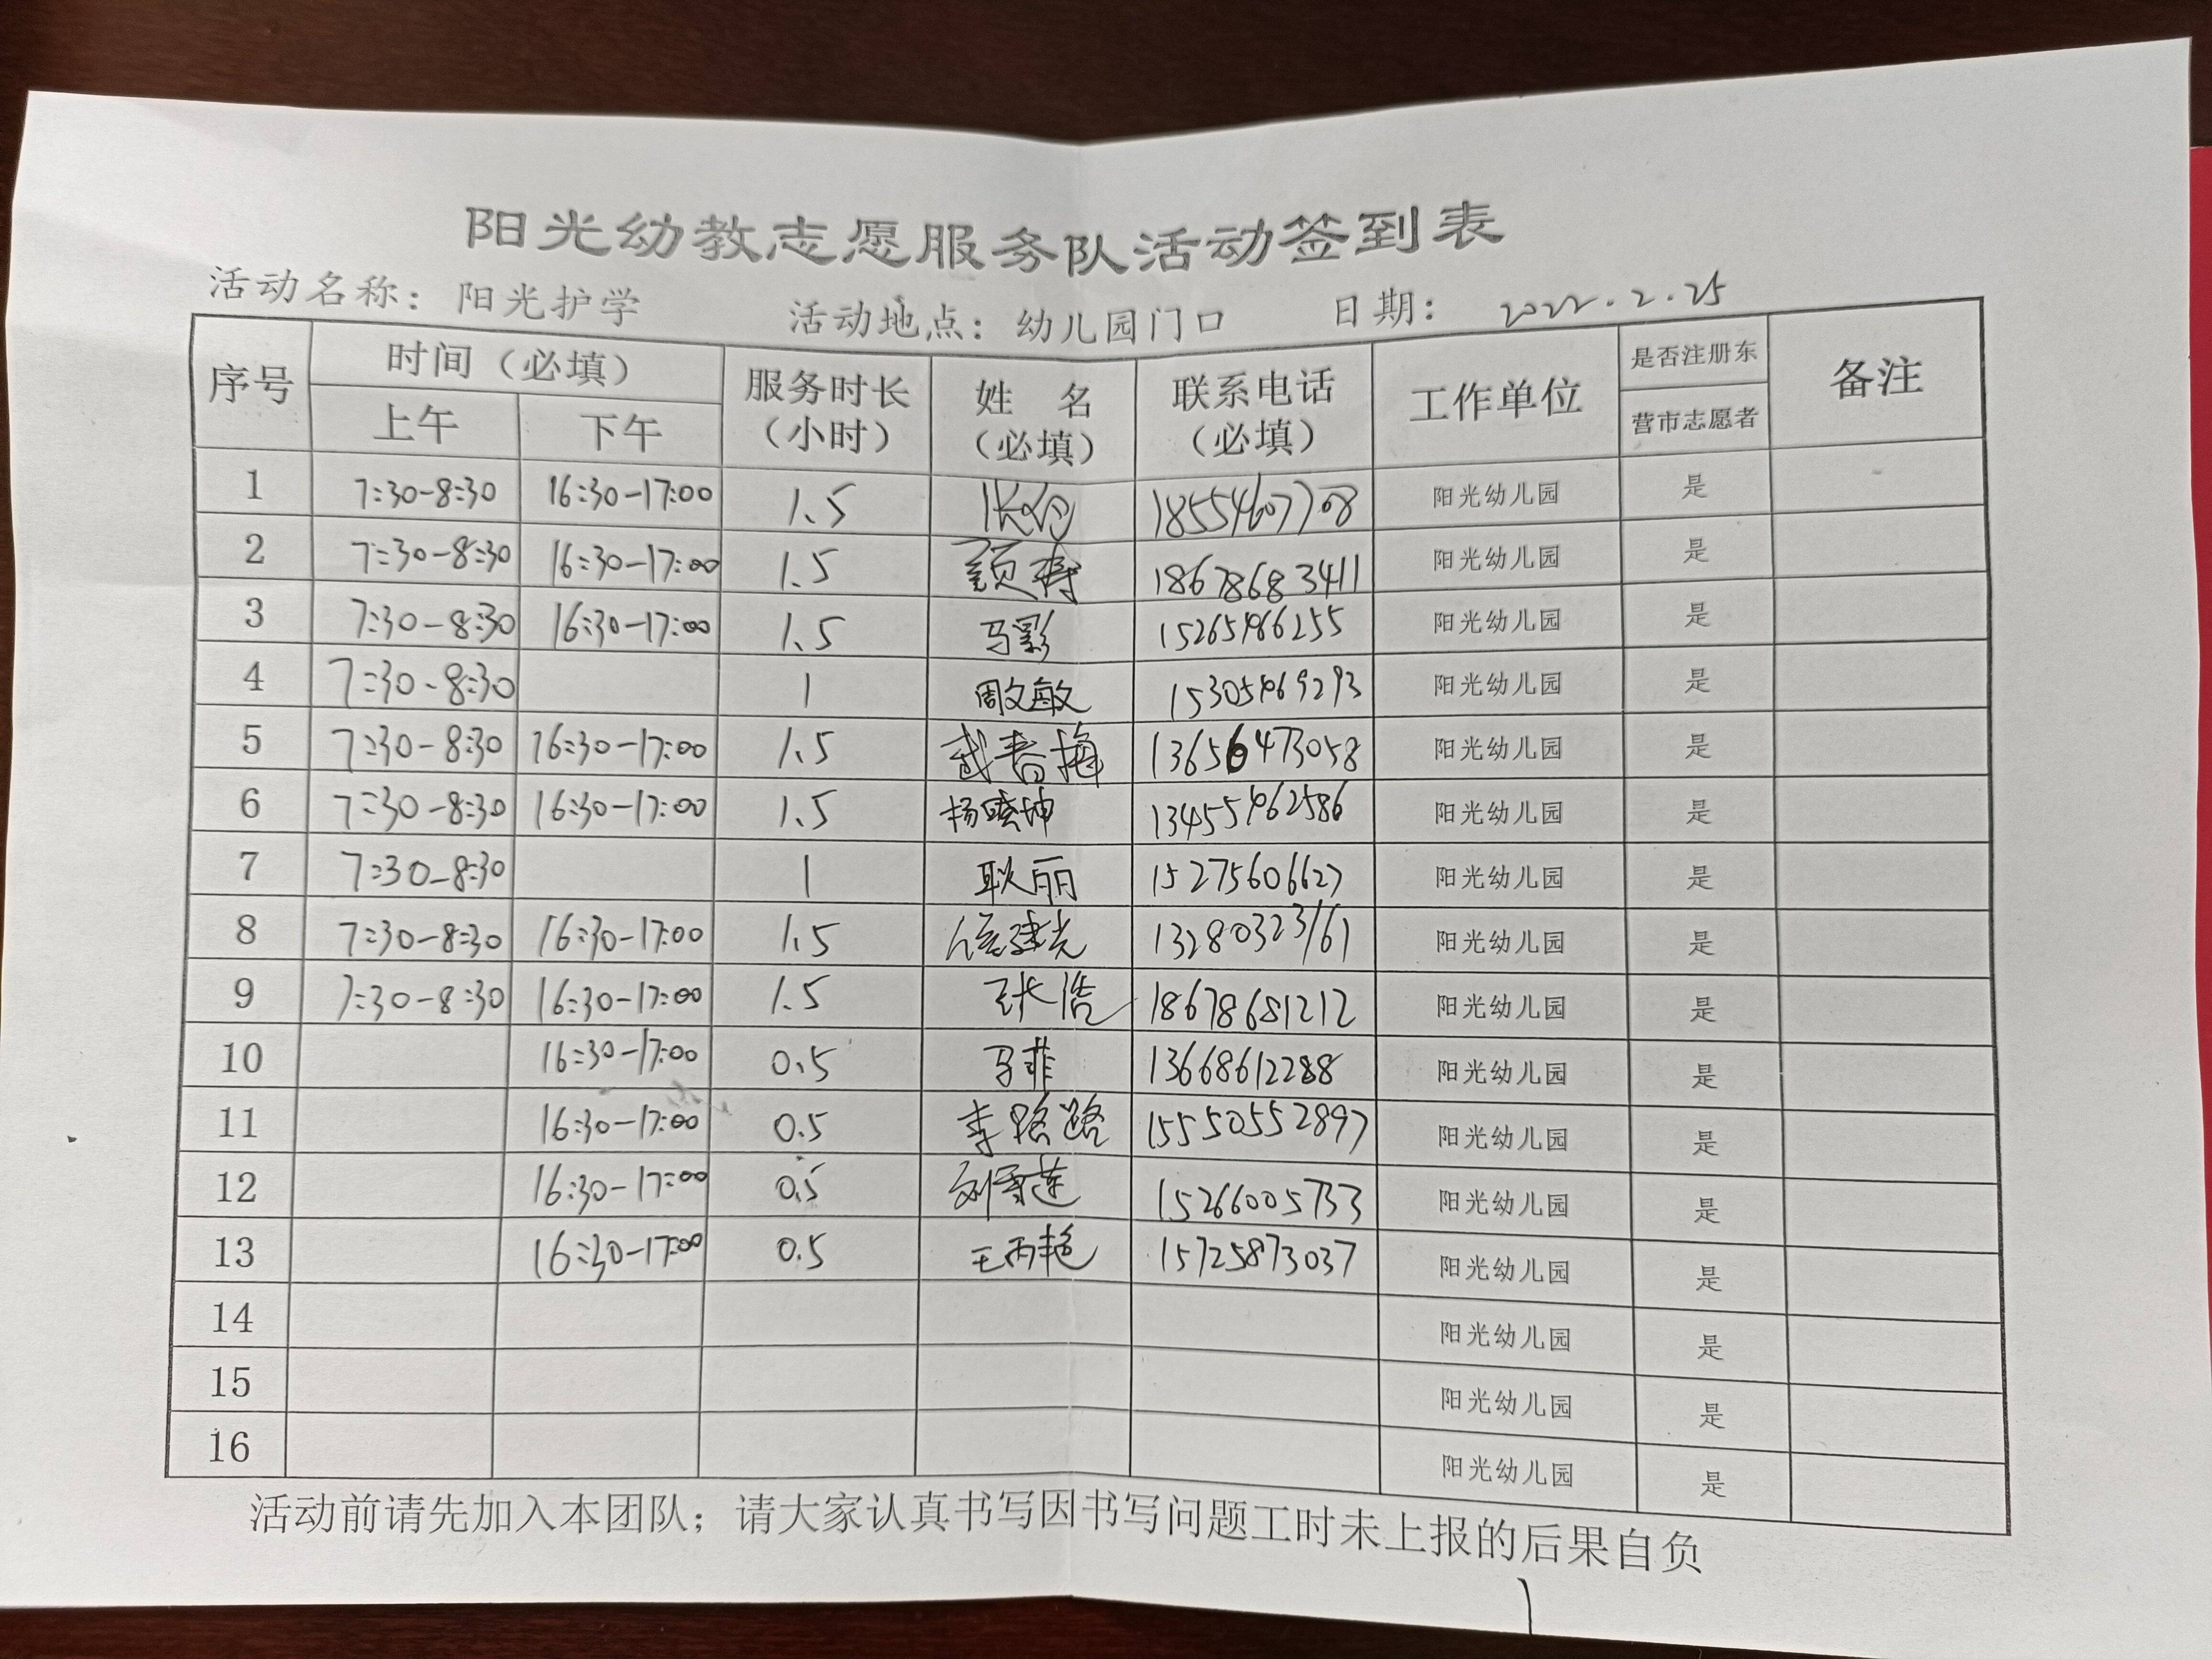 阳光幼教志愿服务队活动签到表
活动名称：阳光护学 活动地点：幼儿园门口 日期：2022.2.25
序号 时间（必填） 服务时长（小时） 姓 名（必填） 联系电话（必填） 工作单位 是否注册东营市志愿者 备注
上午 下午
1 7:30-8:30 16:30-17:00 1.5 18554607708 阳光幼儿园 是
2 7:30-8:30 16:30-17:00 1.5 18678683411 阳光幼儿园 是
3 7:30-8:30 16:30-17:00 1.5 马彩 15265466255 阳光幼儿园 是
4 7:30-8:30 1 周文敏 15305469293 阳光幼儿园 是
5 7:30-8:30 16:30-17:00 1.5 武春梅 13656473058 阳光幼儿园 是
6 7:30-8:30 16:30-17:00 1.5 杨晓坤 13455462586 阳光幼儿园 是
7 7:30-8:30 1 耿丽 15275606627 阳光幼儿园 是
8 7:30-8:30 16:30-17:00 1.5 13280323161 阳光幼儿园 是
9 7:30-8:30 16:30-17:00 1.5 张浩 18678681212 阳光幼儿园 是
10 16:30-17:00 0.5 马菲 13668612288 阳光幼儿园 是
11 16:30-17:00 0.5 李路路 15550552897 阳光幼儿园 是
12 16:30-17:00 0.5 刘雪莲 15266005733 阳光幼儿园 是
13 16:30-17:00 0.5 王丙艳 15725873037 阳光幼儿园 是
14 阳光幼儿园 是
15 阳光幼儿园 是
16 阳光幼儿园 是
活动前请先加入本团队；请大家认真书写因书写问题工时未上报的后果自负